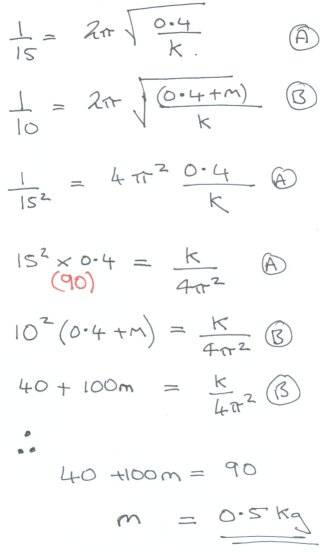 1/15 = 2π √(0.4/k) Ⓐ
1/10 = 2π √((0.4+m)/k) Ⓑ
1/15² = 4π² 0.4/k Ⓐ
15² × 0.4 = k/4π² Ⓐ
(90)
10² (0.4+m) = k/4π² Ⓑ
40 + 100m = k/4π² Ⓑ
∴
40 +100m = 90
m = 0.5 kg